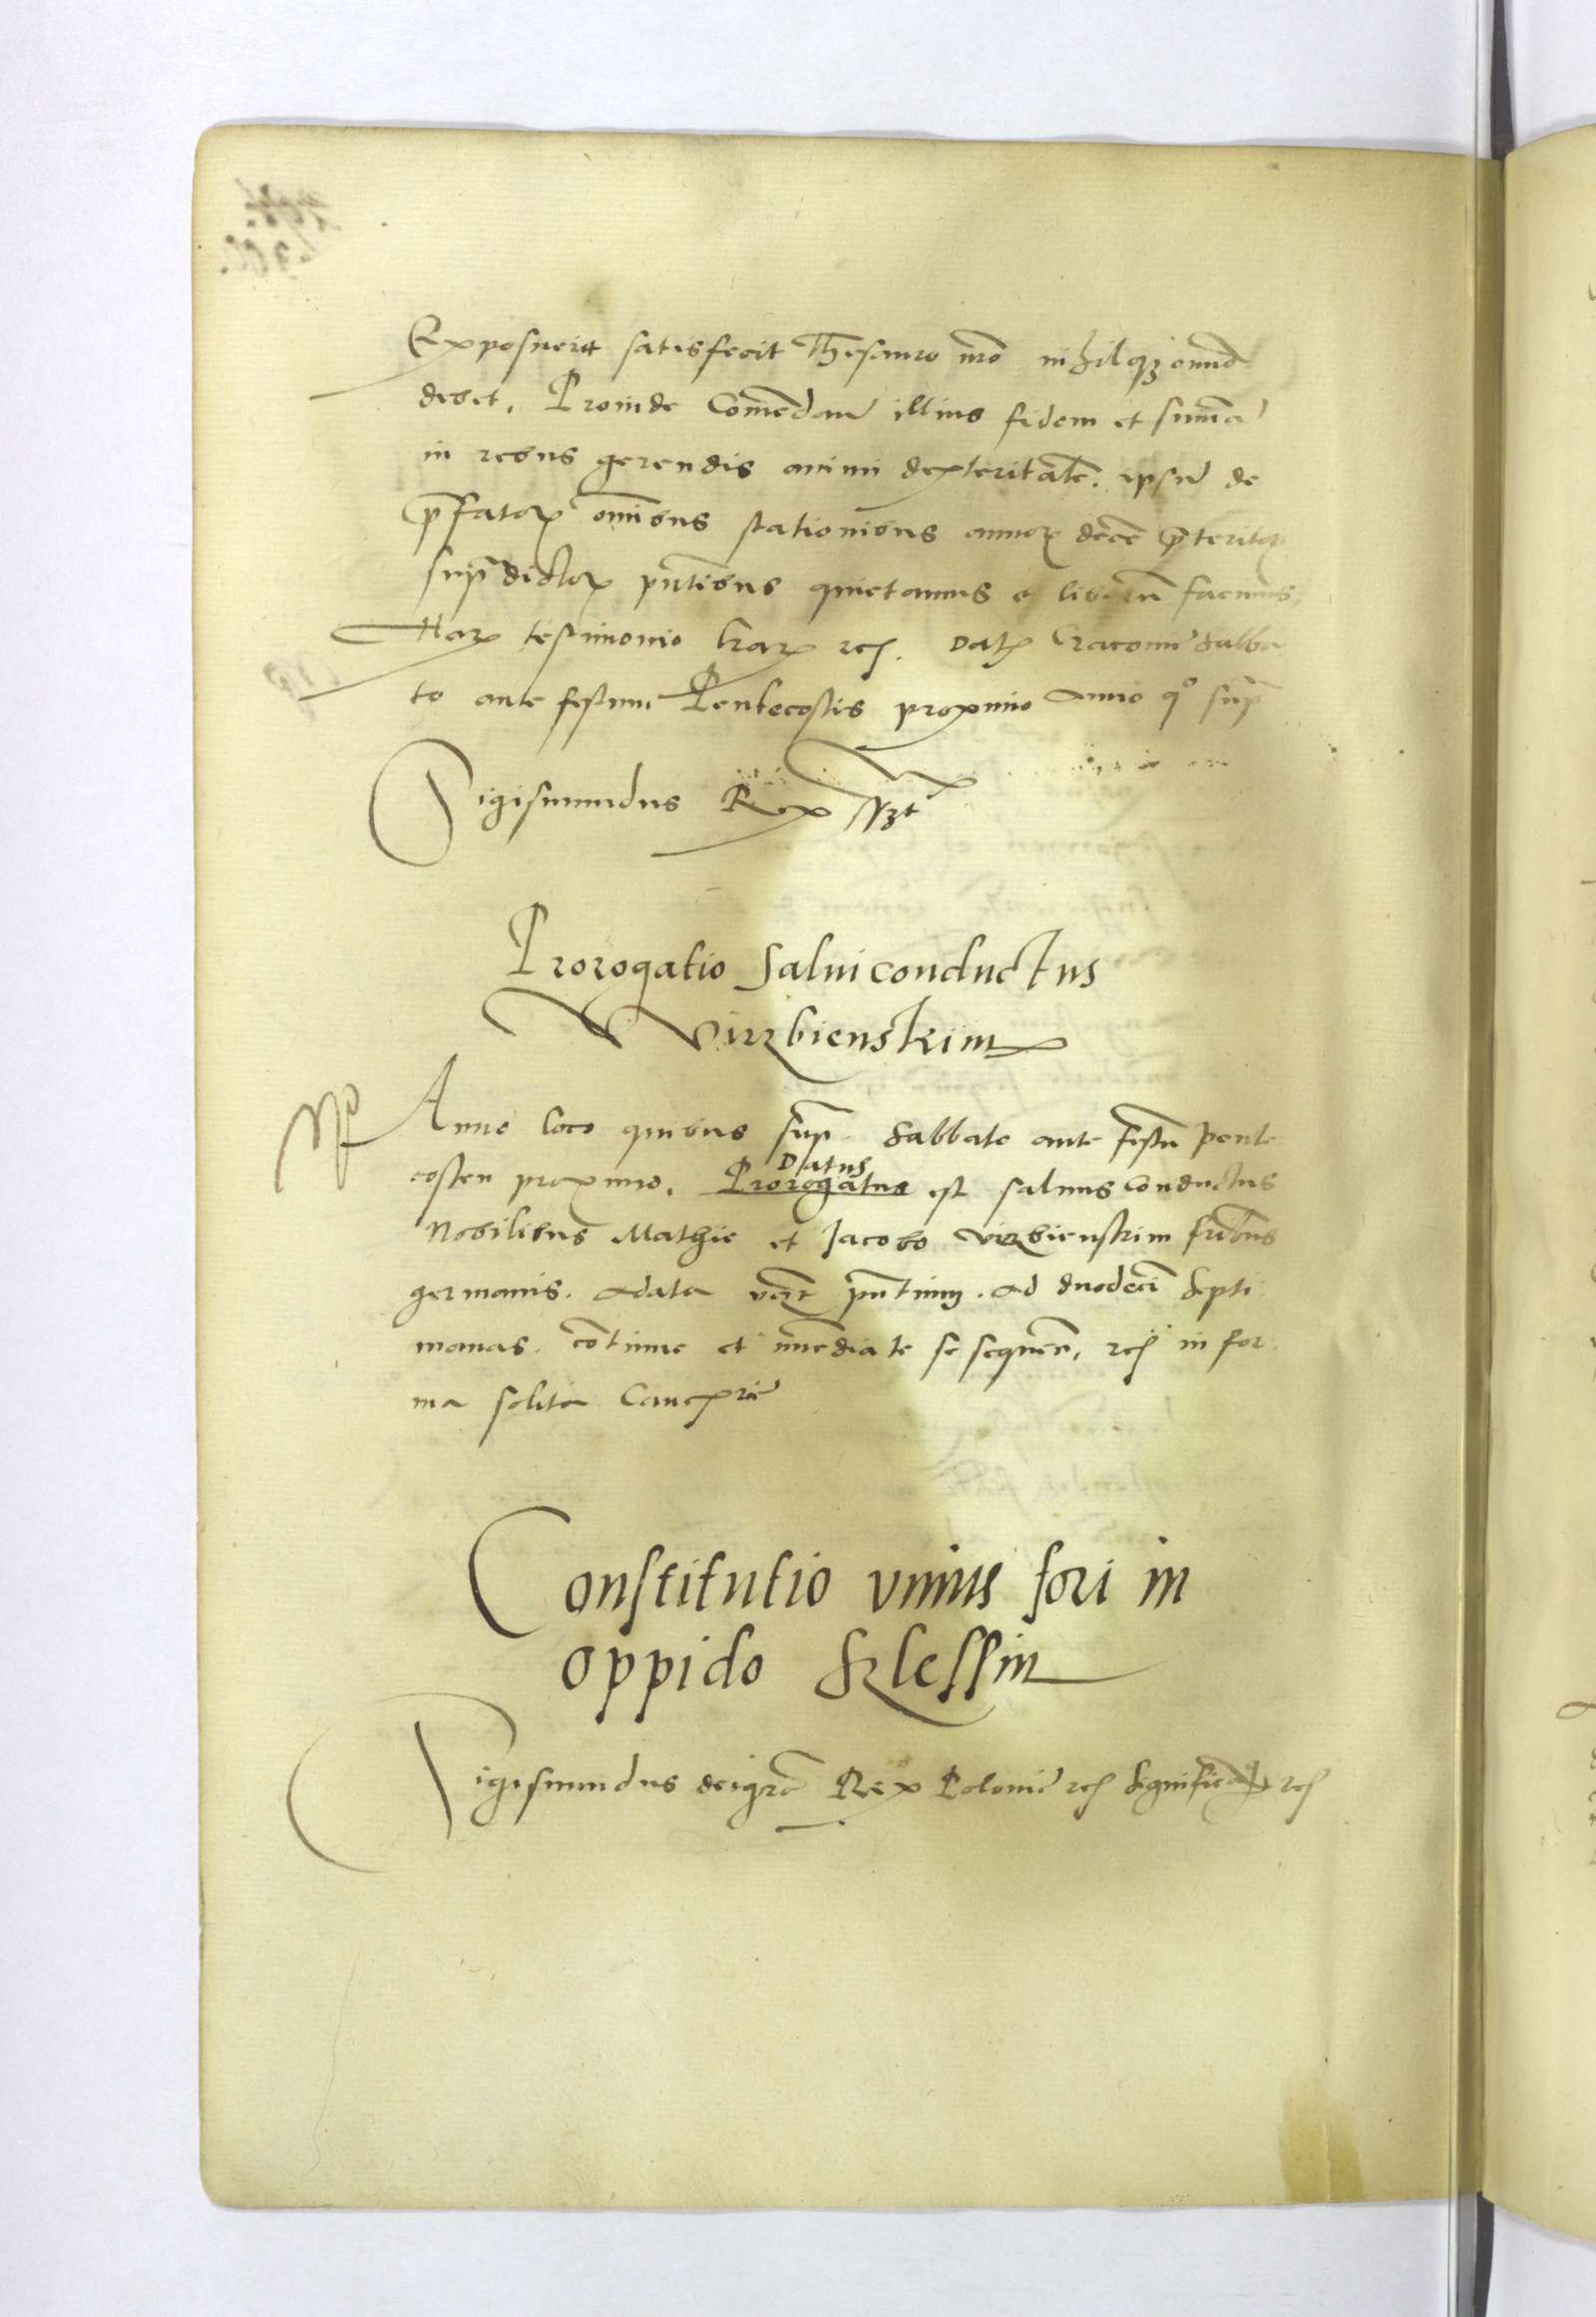 Exposuerit satisfecit Thesauro nro nihilq3 omnið
debet. Proinde Comendan illius fidem et summa
in rebus gerendis animi dexteritatē. ipsu de
p̄fatorꝝ omibus stationibus annorꝝ decē p̄teritorꝝ
supradictorꝝ pntibus quietamus & liberū facimus
Harꝝ testimonio lrarꝝ rcɟ. Datꝭ Cracovie Sabba
to ante festum Pentecostis proximo Anno qo supra
Sigismundus Rex sszt
Prorogatio Salviconductus
Virzbienskim
Anno loco quibus supra Sabbato ante festū Pente
costen proximo. Prorogatus Datus est salvus conductus
Nobilibus Mathie et Jacobo Virzbienskim frībus
germanis. A data pn̄tium. Ad duodecī Septi
manas. cōtinue et immediate se sequen̄. rcɟ in for
ma solita Cancrie
Constitutio unius fori in
oppido Sklessin
Sigismundus dei gra Rex Polonie rcɟ Significamus rcɟ